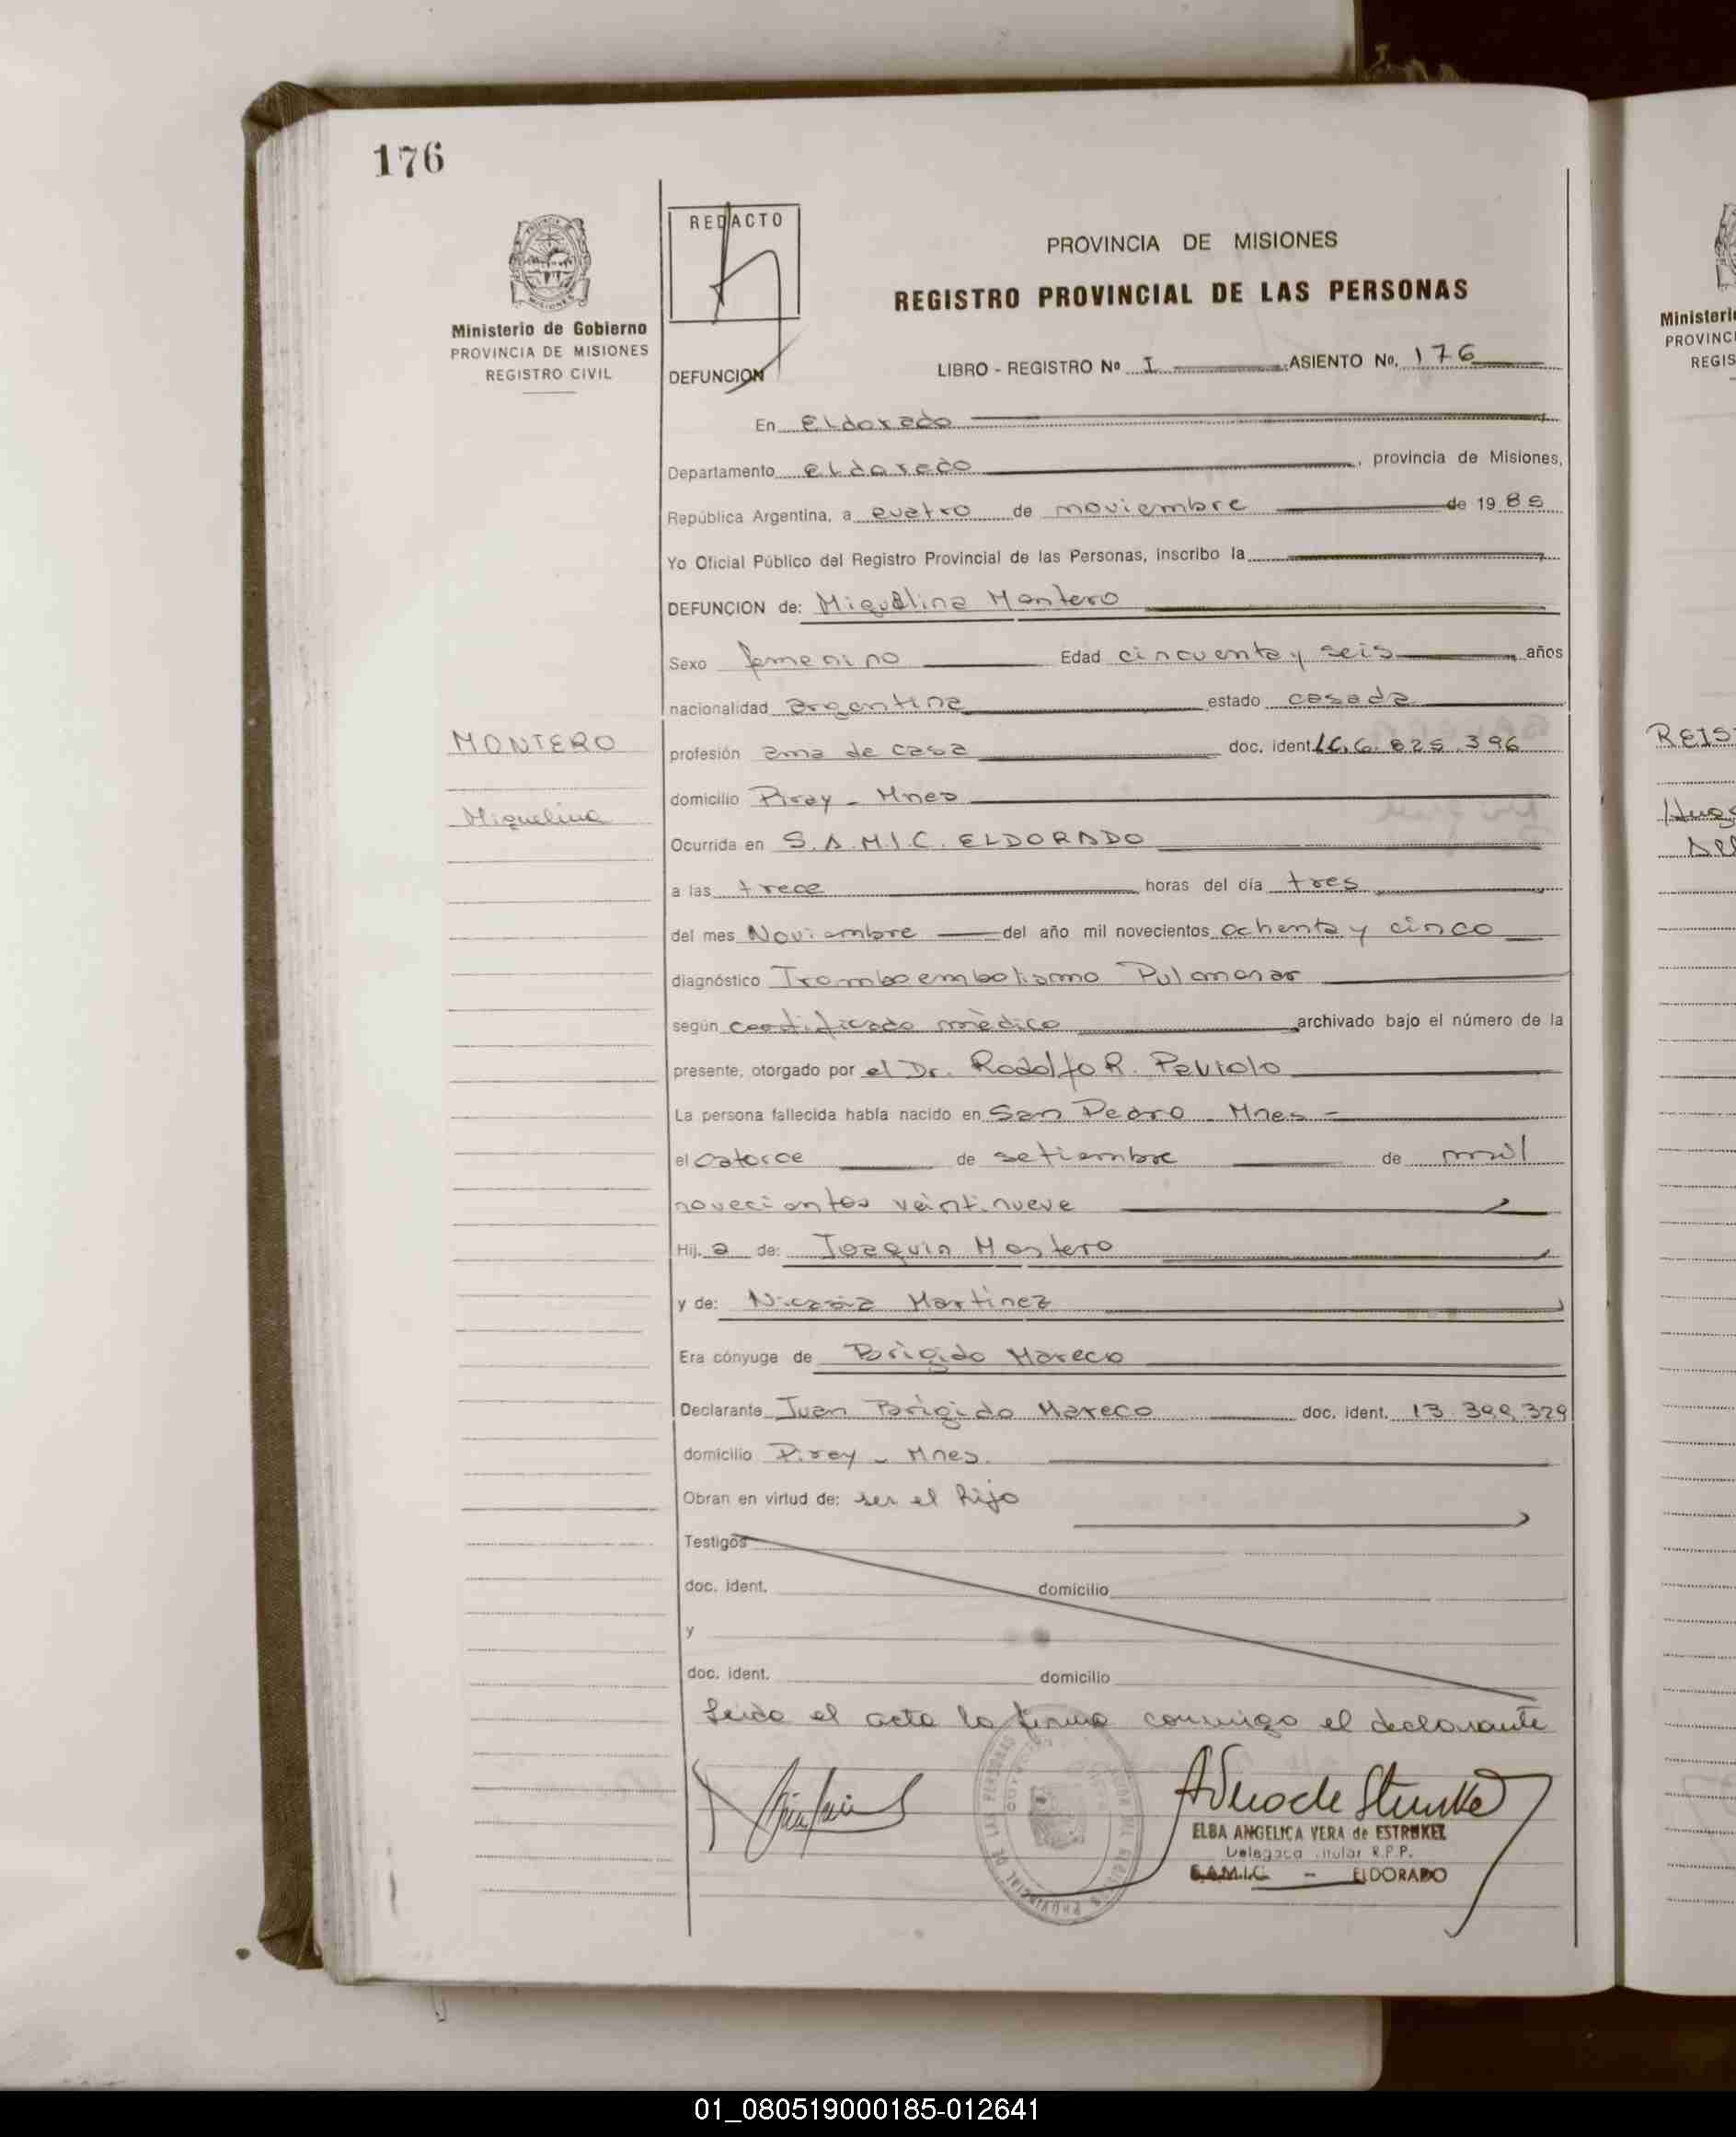 176
REDACTO
PROVINCIA DE MISIONES
REGISTRO PROVINCIAL DE LAS PERSONAS
Ministerio de Gobierno
PROVINCIA DE MISIONES
REGISTRO CIVIL
DEFUNCION
LIBRO - REGISTRO Nº I ASIENTO Nº. 176
En Eldorado
Departamento eldorado, provincia de Misiones,
República Argentina, a cuatro de noviembre de 1985
Yo Oficial Público del Registro Provincial de las Personas, inscribo la
DEFUNCION de: Miguelina Montero
Sexo femenino Edad cincuenta y seis años
nacionalidad argentina estado casada
MONTERO
Miguelina
profesión ama de casa doc. ident. 6.825.396
domicilio Piray - Mnes
Ocurrida en S.A.M.I.C. ELDORADO
a las trece horas del día tres
del mes Noviembre del año mil novecientos ochenta y cinco
diagnóstico Tromboembolismo Pulmonar
según certificado médico archivado bajo el número de la
presente, otorgado por el Dr. Rodolfo R. Paviolo
La persona fallecida había nacido en San Pedro - Mnes -
el catorce de setiembre de mil
novecientos veintinueve
Hij a de: Joaquin Montero
y de: Nicasia Martinez
Era cónyuge de Brigido Mareco
Declarante Juan Brigido Mareco doc. ident. 13.399.329
domicilio Piray - Mnes.
Obran en virtud de: ser el hijo
Testigos
doc. ident. domicilio
y
doc. ident. domicilio
Leida el acta la firma conmigo el declarante
ELBA ANGELICA VERA de ESTRUKEL
Delegada Titular R.P.P.
S.A.M.I.C. - ELDORADO
Ministeri
PROVINC
REGIS
REIS
Hug
01_080519000185-012641